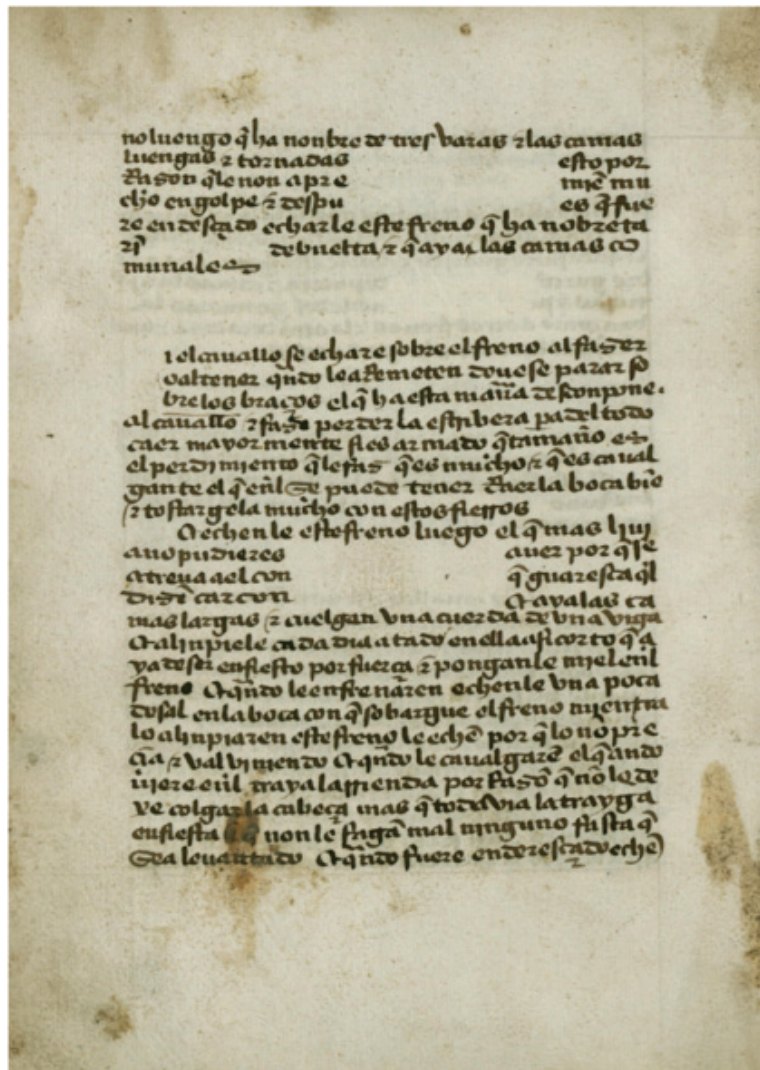 no luengo q̃ ha nonbre de tres varas ⁊ las camas
luengas ⁊ tornadas esto por
Razon q̃ le non apre mie mu
cho en golpe ⁊ despu es q̃ fue
re endesçado echarle este freno q̃ ha nobre ta
ri de buelta ⁊ q̃ aya las camas co
munales
i el cavallo se echare sobre el freno al fazer
o al tener qñdo le aRemeten do vese parar so
bre los braços el q̃ ha esta mañra desconpone
al cavallo ⁊ faze perder la estribera pa del todo
caer mayor mente si es armado q̃ tamaño es
el perdimiento q̃ le faz q̃ es mucho ⁊ q̃ es caval
gante el q̃ enl se puede tener traer la boca bie
⁊ tostargela mucho con estos fierros
echenle este freno luego el q̃ mas livi
ano pudieres aver por q̃ se
atreva a el con q̃ guaresca q̃l
con E aya las ca
mas largas ⁊ cuelgan vna cuerda de vna viga
E alinpiele cada dia atado en ella asi corto q̃ a
ya de ser enfiesto por fuerça ⁊ ponganle miel enl
freno E qñdo le enfrenaren echenle vna poca
de sal en la boca con q̃ sobargue el freno mientra
lo alinpiaren este freno le eche por q̃ lo no pre
çia ⁊ val viniendo E qñdo le cavalgare el q̃ ando
viere enl traya la rrienda por Razo q̃ no le de
ve colgar la cabeça mas q̃ toda via la trayga
enfiesta non le faga mal ninguno fasta q̃
sea levantado E qñdo fuere enderesçado eche